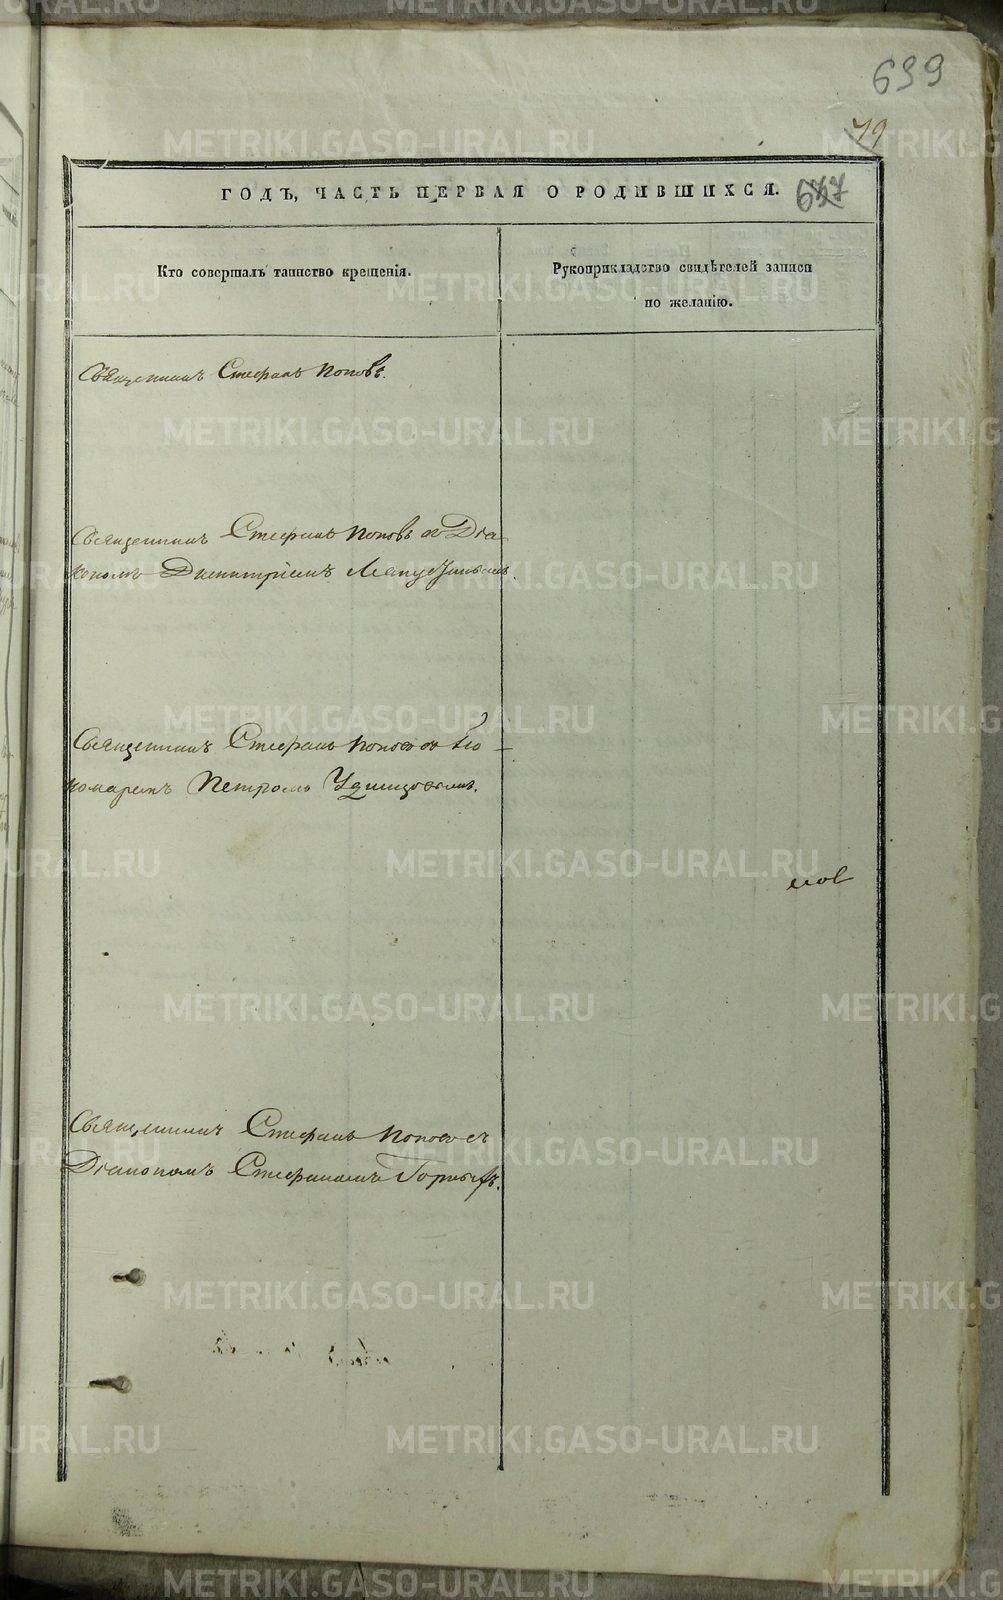 639
79
ГОДЪ, ЧАСТЬ ПЕРВАЯ О РОДИВШИХСЯ. 637
Кто совершалъ таинство крещенія.
Рукоприкладство свидѣтелей записи
по желанію.
Священникъ Стефанъ Поповъ.
Священникъ Стефанъ Поповъ съ Діа
кономъ Димитріемъ
Священникъ Стефанъ Поповъ съ По-
номаремъ Петромъ Удинцовымъ.
мов
Священникъ Стефанъ Поповъ съ
Діакономъ Стефаномъ
METRIKI.GASO-URAL.RU